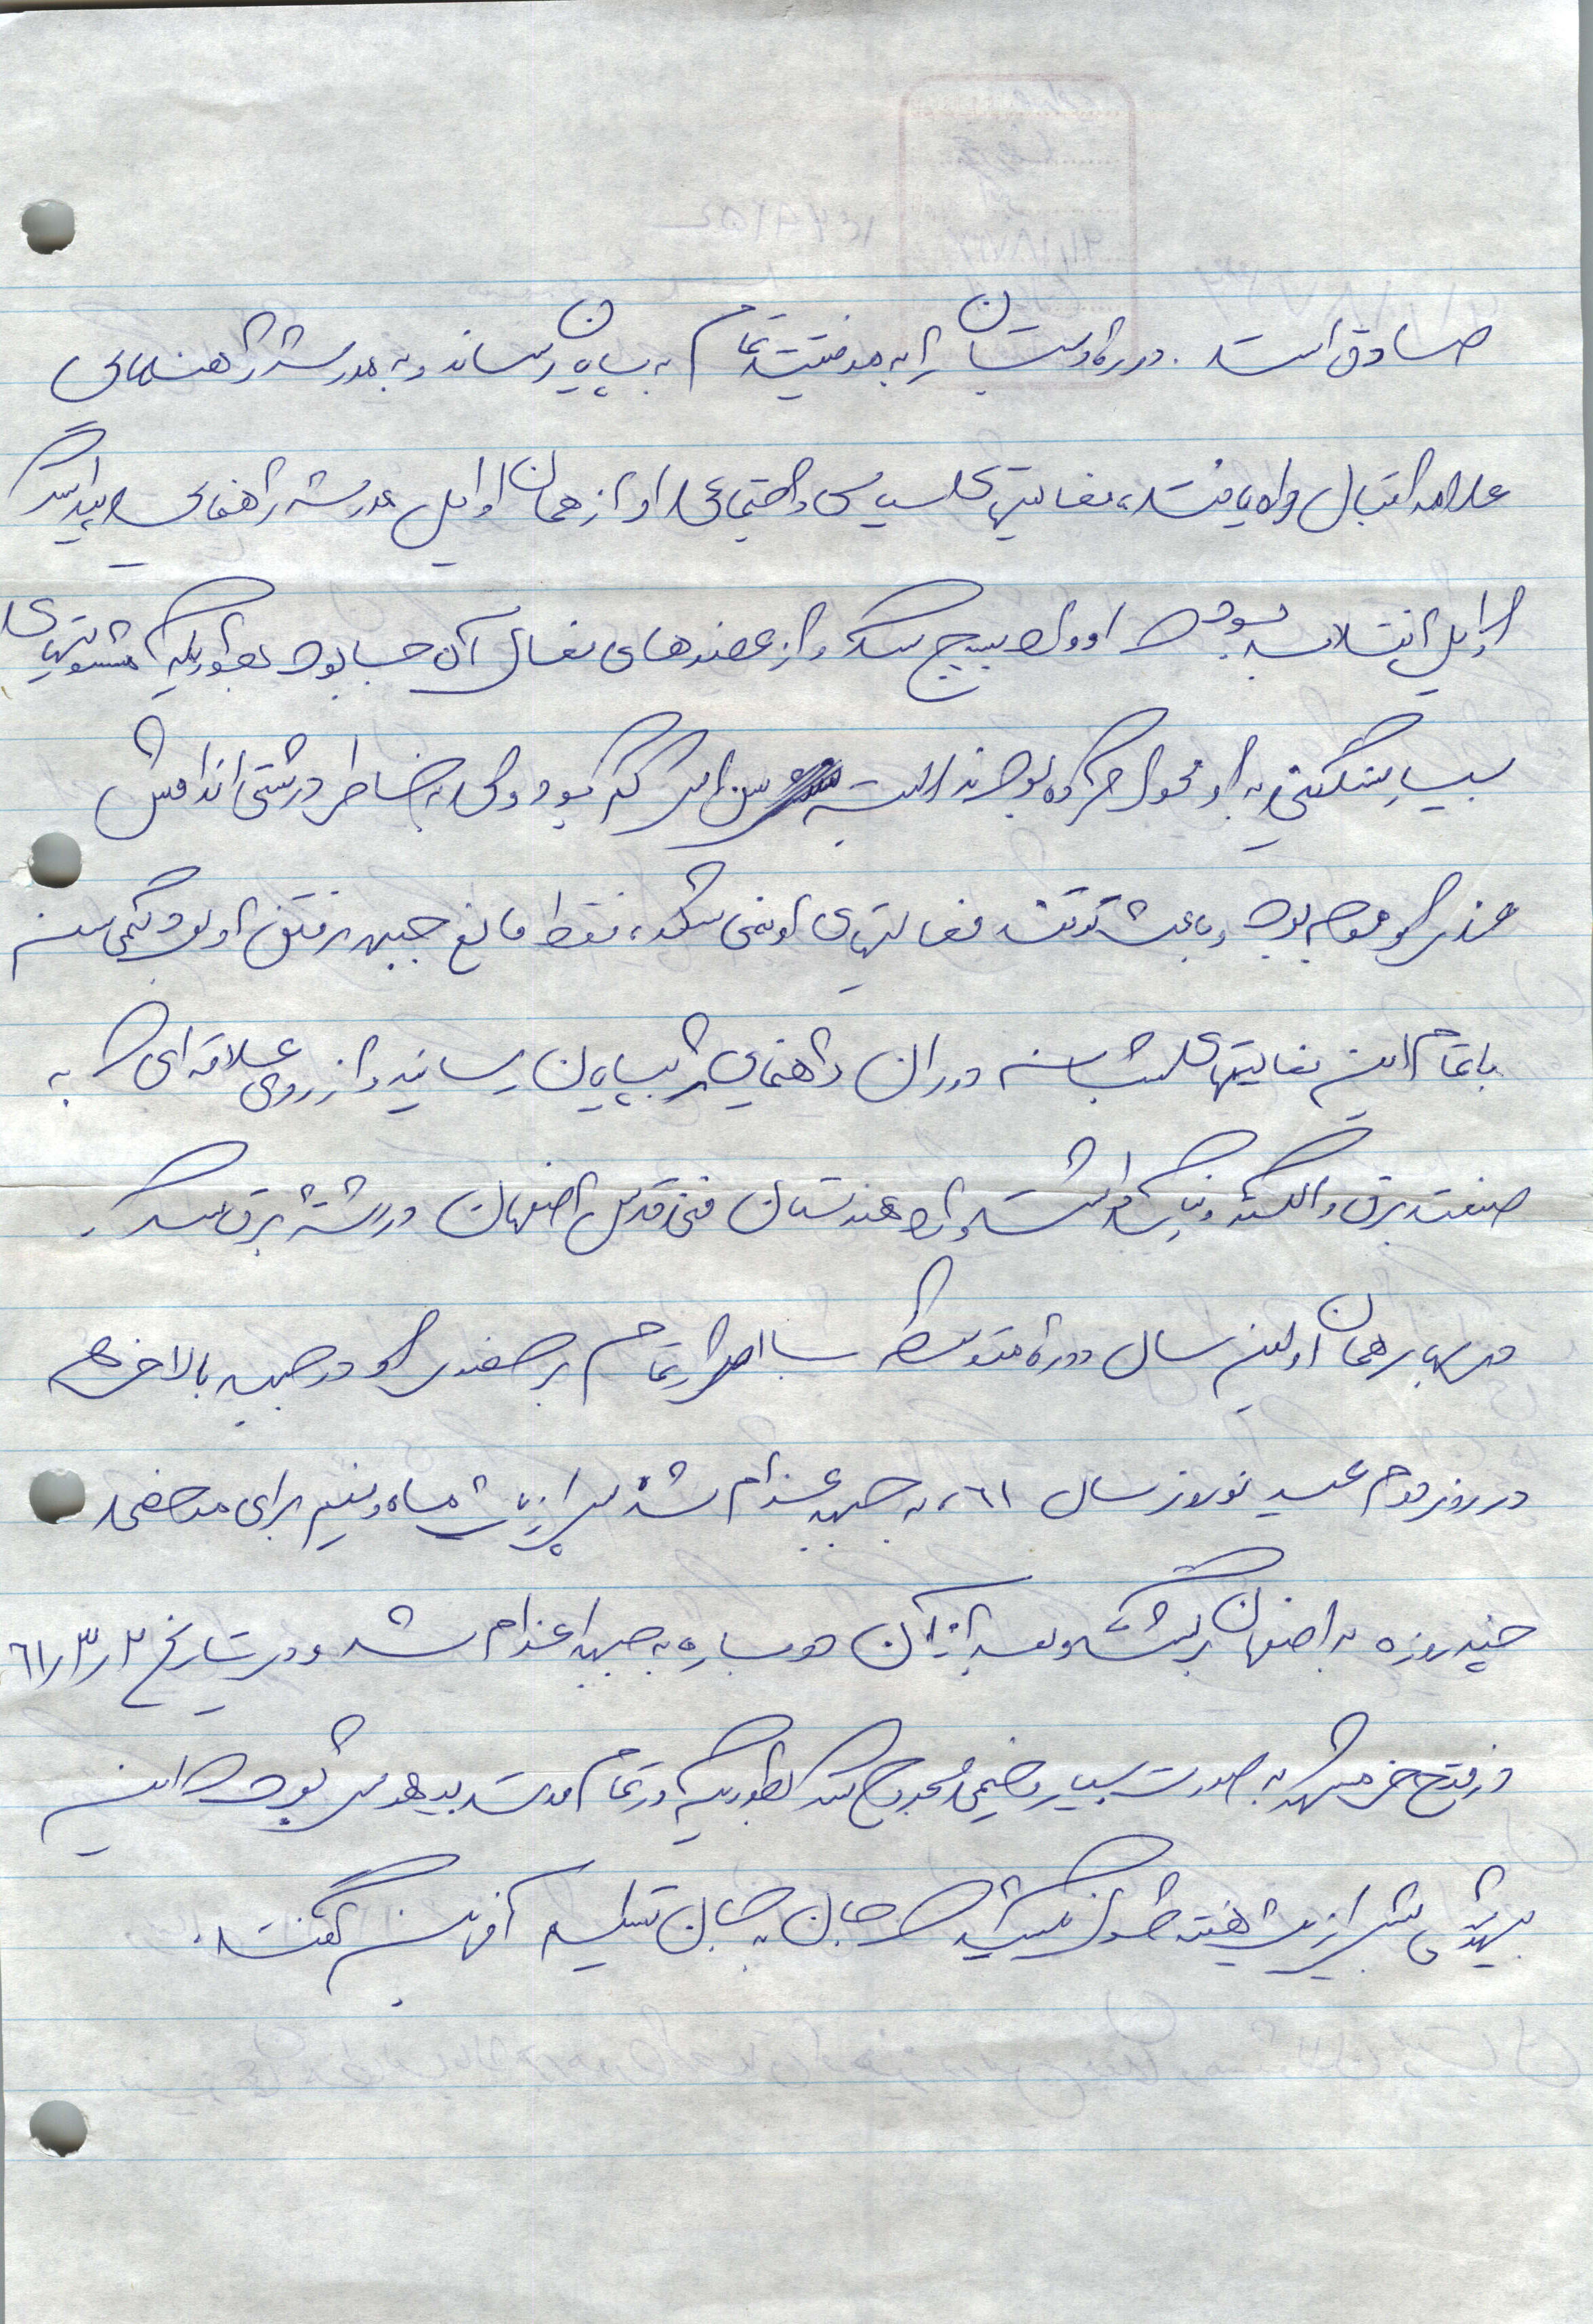 صادق است . دوره دبستان را به موفقیت تمام به پایان رساند و به مدرسه راهنمائی
علامه اقبال راه یافت، فعالیتهای سیاسی و اجتماعی او از همان اوایل مدرسه راهنمائی پیدا شد
اوایل انقلاب بود که او وارد بسیج شد و از عضوهای فعال آن جا بود بطوریکه مسئولیتهای
بسیار سنگینی به او محول کرده بودند البته سن او کم بود ولی به خاطر درشتی اندامش
عذر او موجه بود و باعث توقف فعالیتهای او نمی شد، فقط مانع جبهه رفتن او بود کمی سن
با تمام این فعالیتهای دوران راهنمایی را بپایان رسانید و از روی علاقه ای که به
صنعت برق و الکترونیک داشت وارد هنرستان فنی قدس اصفهان در رشته برق شد .
در بهار همان اولین سال دوره متوسطه با اصرار تمام بر حضور او در جبهه بالاخره
در روز دوم عید نوروز سال ٦١، به جبهه اعزام شد پس از یک ماه و نیم برای مرخصی
چند روزه به اصفهان برگشت و بعد از آن دوباره به جبهه اعزام شد و در تاریخ ٦١/٣/٢
در فتح خرمشهر به صورت بسیار وخیمی مجروح شد بطوریکه در تمام مدت بیهوش بود که این
بیهوشی بیش از یک هفته طول نکشید که جان به جان آفرین تسلیم گفت .